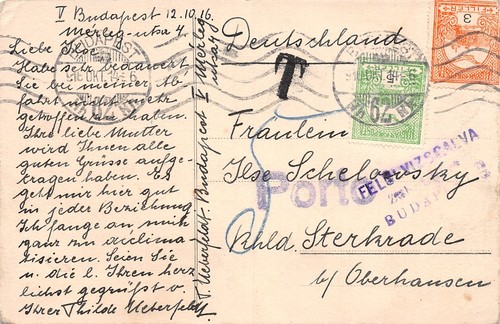 V Budapest 12.10.16.
Mérleg-utsa 4.
Liebe Ilse
Habe sehr bedauert
Sie bei meiner Ab-
fahrt nicht mehr
getroffen zu haben.
Ihre liebe Mutter
wird Ihnen alle
guten Grüsse aufge-
tragen haben. Es
geht mir hier gut
in jeder Beziehung
Ich fange an, mich
ganz zu acclima
tisieren. Seien Sie
u. die l. Ihren herz
lichst gegrüsst v.
Ihrer Thilde Ueberfeldt
T. Ueberfeldt. Budapest V Mérleg
utsa 4
BUDAPEST
916 OKT. 14
T
Deutschland
FILLÉR
3
62
Fräulein
Ilse Schelowsky
Porto
FELÜLVIZSGÁLVA
BUDAPEST
Rhld. Sterkrade
b/ Oberhausen